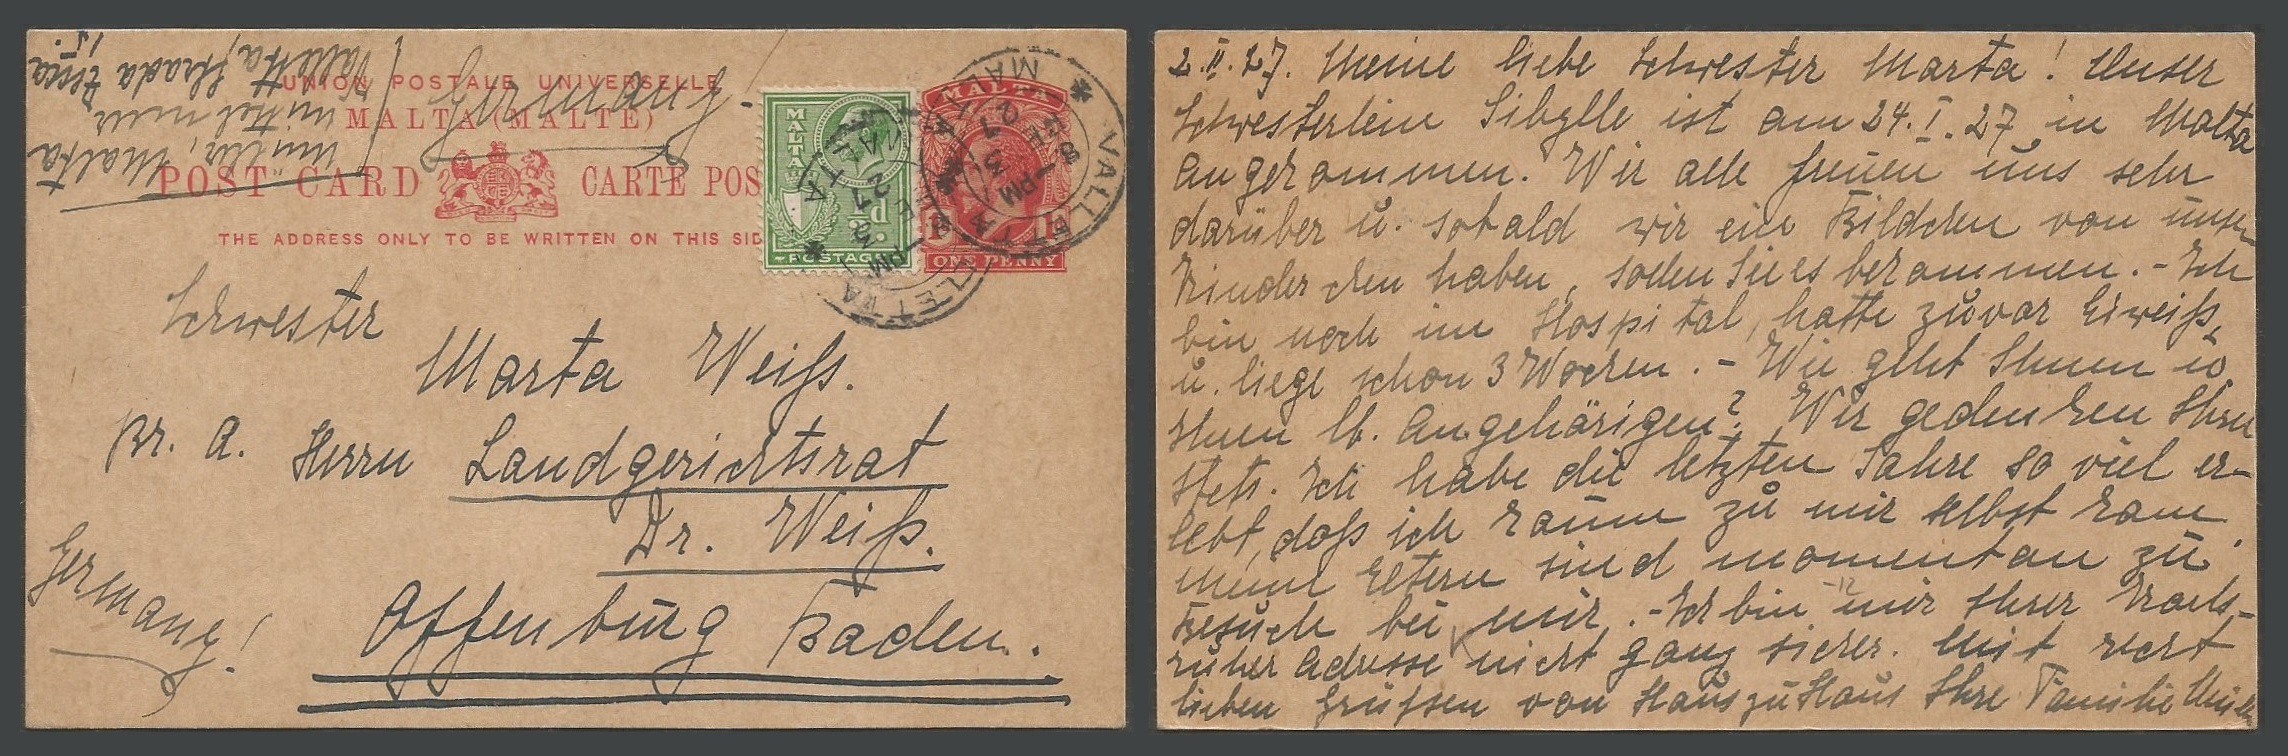 Miller, Malta
Mittelmeer
Valletta Strada Zecca
15.
Germany!
UNION POSTALE UNIVERSELLE
MALTA (MALTE)
POST CARD CARTE POS
THE ADDRESS ONLY TO BE WRITTEN ON THIS SID
MALTA
½d
POSTAGE
MALTA
1d
ONE PENNY
VALLETTA MALTA
8-PM
3 FE
27
VALLETTA MALTA
PM
3 FE
27
Schwester
Marta Weiß.
Br. A. Herrn Landgerichtsrat
Dr. Weiß.
Offenburg Baden.
Germany!
2.II.27. Meine liebe Schwester Marta! Unser
Schwesterlein Sibylle ist am 24.I.27 in Malta
angekommen. Wir alle freuen uns sehr
darüber u. sobald wir ein Bildchen von unser
Kinderchen haben, sollen Sie es bekommen. - Ich
bin noch im Hospital, hatte zuvor Eiweiß,
u. liege schon 3 Wochen. - Wie geht Ihnen u.
Ihren lb. Angehörigen? Wir gedenken Ihrer
stets. Ich habe die letzten Jahre so viel er-
lebt, daß ich kaum zu mir selbst kam.
Meine Eltern sind momentan zu
Besuch bei mir. - Ich bin mir Ihrer Karls-
ruher Adresse nicht ganz sicher. Mit recht
lieben Grüßen von Haus zu Haus Ihre Familie Miller